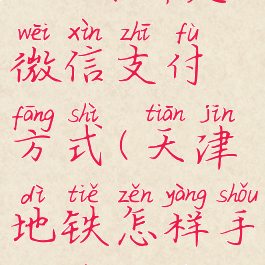 wēi xìn zhī fù
微信支付
fāng shì tiān jīn
方式(天津
dì tiě zěn yàng shǒu
地铁怎样手